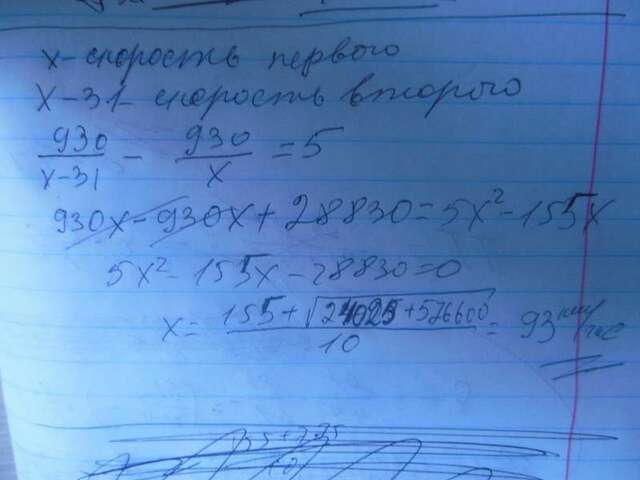 x - скорость первого
x - 31 - скорость второго
930/(x-31) - 930/x = 5
930x - 930x + 28830 = 5x² - 155x
5x² - 155x - 28830 = 0
x = (155 + √(24025 + 576600))/10 = 93 км/час